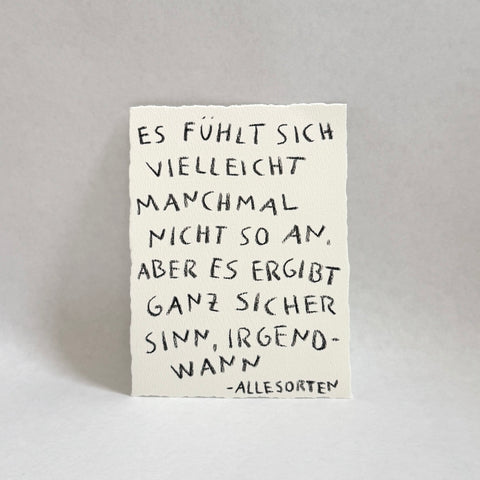 ES FÜHLT SICH
VIELLEICHT
MANCHMAL
NICHT SO AN.
ABER ES ERGIBT
GANZ SICHER
SINN, IRGEND-
WANN
-ALLESORTEN